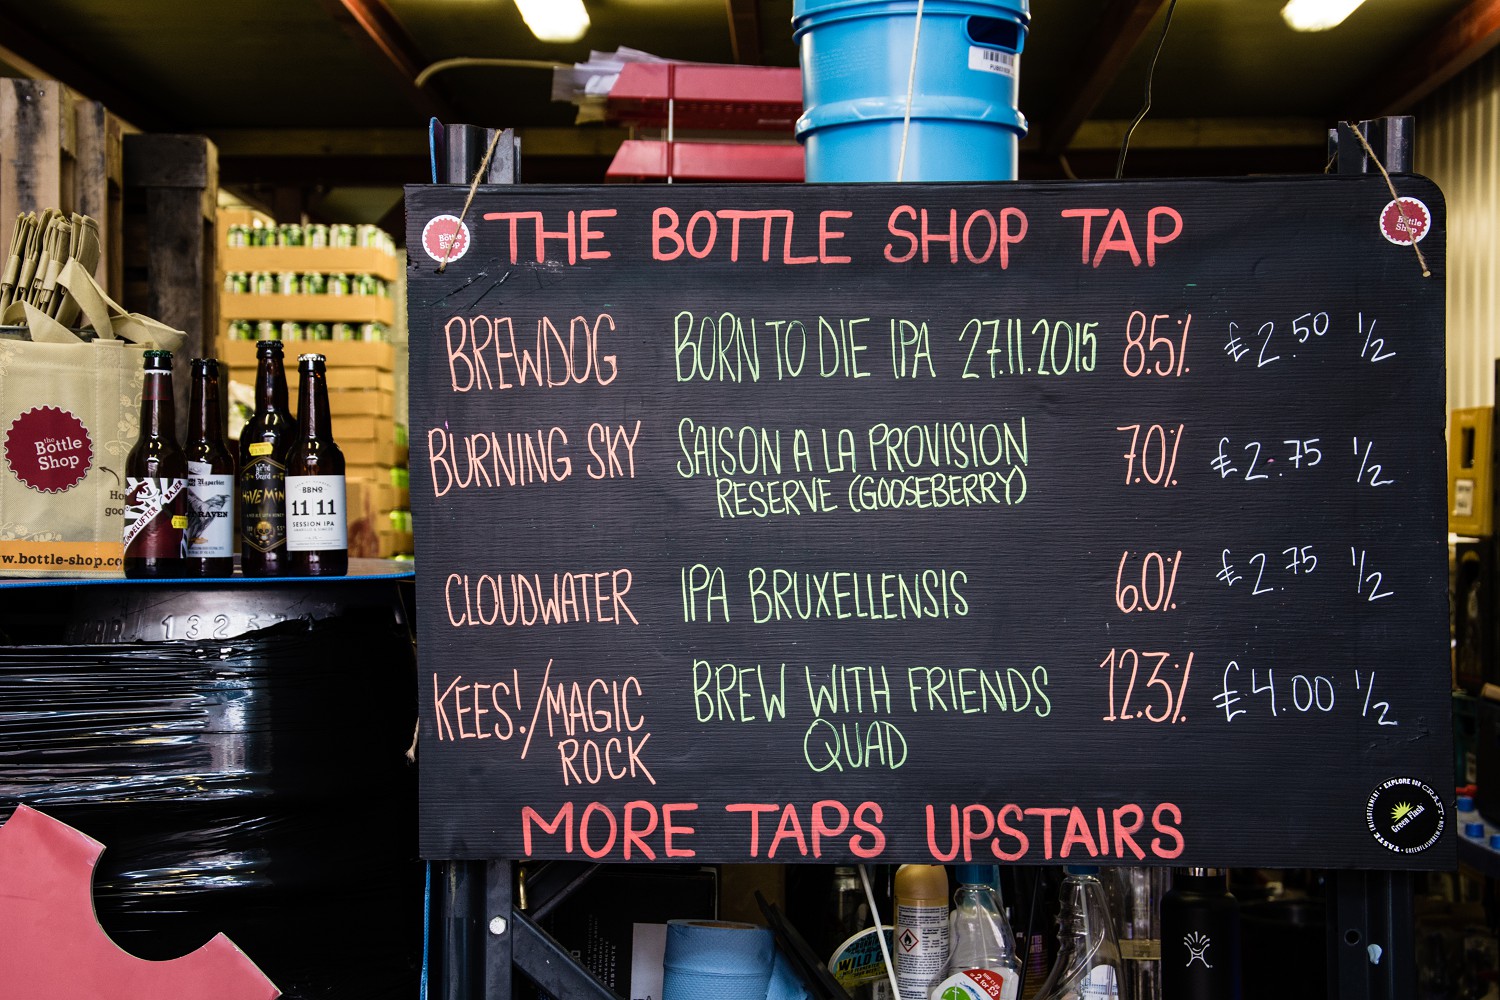 THE BOTTLE SHOP TAP
the Bottle Shop
the Bottle Shop
BREWDOG BORN TO DIE IPA 27.11.2015 8.5% £2.50 1/2
BURNING SKY SAISON A LA PROVISION 7.0% £2.75 1/2
RESERVE (GOOSEBERRY)
CLOUDWATER IPA BRUXELLENSIS 6.0% £2.75 1/2
KEES!/MAGIC BREW WITH FRIENDS 12.3% £4.00 1/2
ROCK QUAD
MORE TAPS UPSTAIRS
EXPLORE OUR CRAFT
Green Flash
TASTE
the
Bottle
Shop
w.bottle-shop.co
RAVEN
HIVEMIN
BBNO
11|11
SESSION IPA
1325
WILD
2 for £3